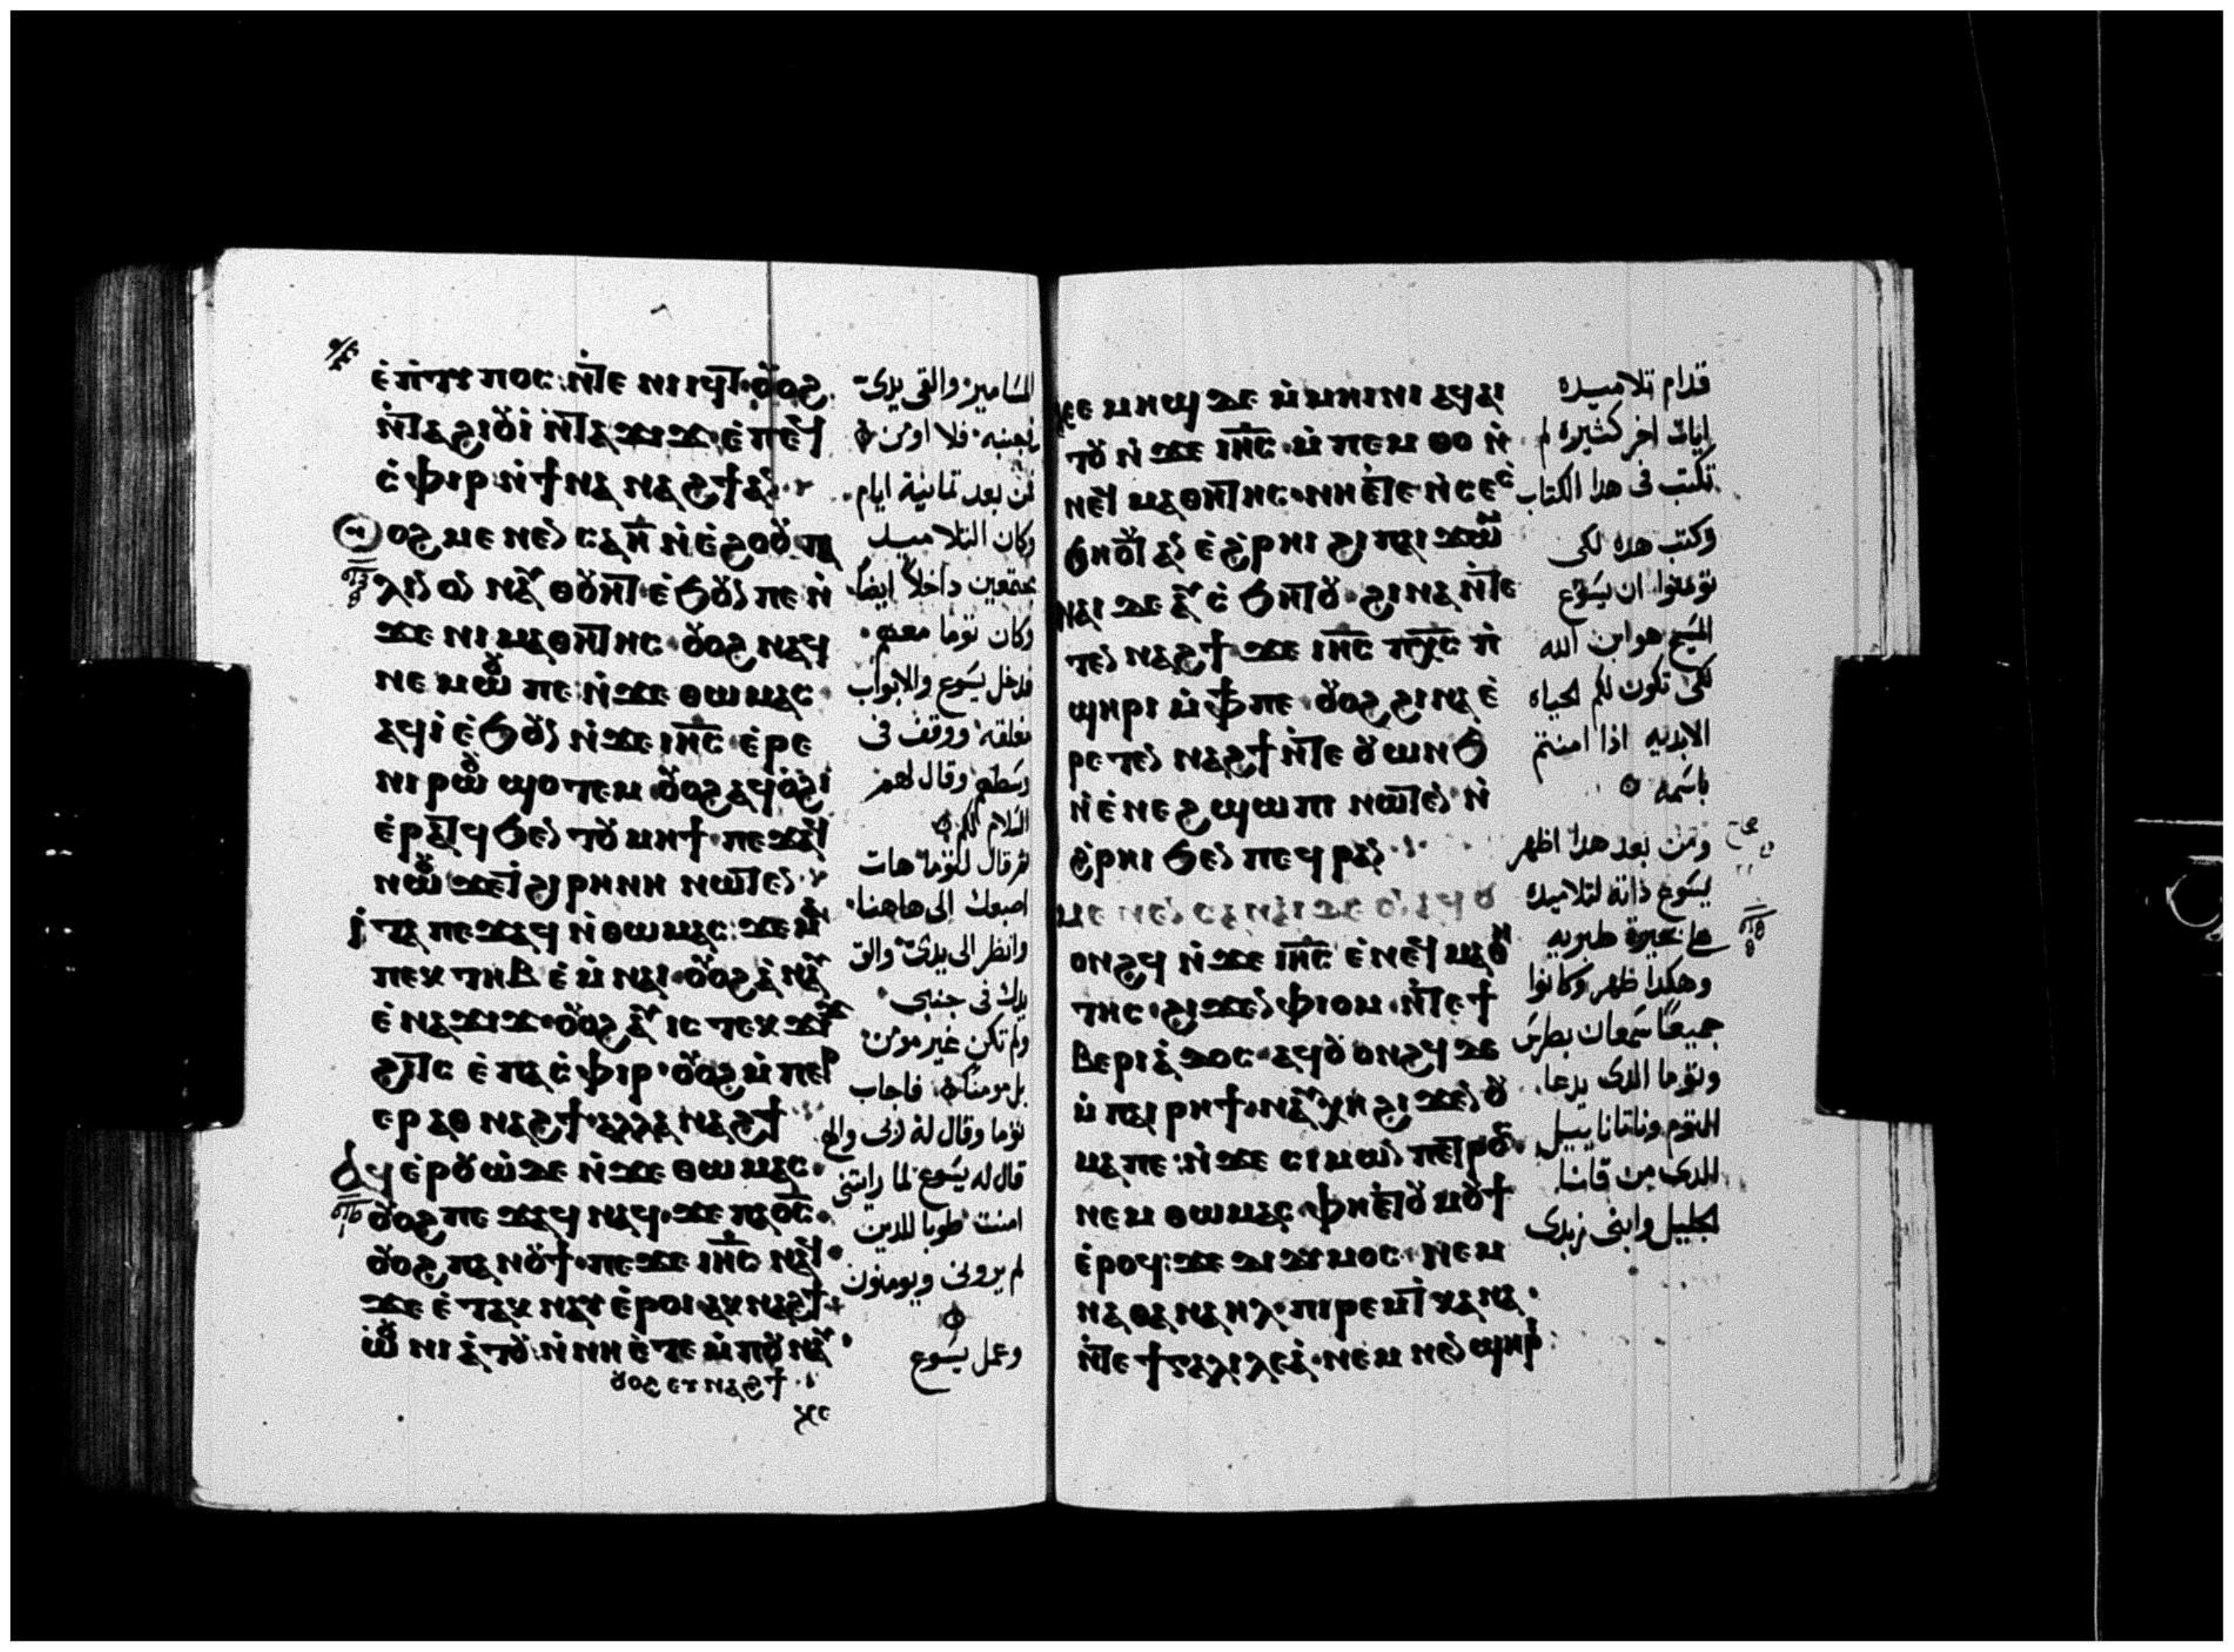 ⲉ̀ⲡ̀ⲧⲩⲡⲟⲥ: ⲛ̀ⲧⲉ ⲛⲓⲓϥⲧ· ⲟⲩⲟϩ
ⲛ̀ⲧⲁϩⲓⲟⲩⲓ̀ ⲛ̀ⲧⲁϫⲓϫ· ⲉ̀ⲡⲉϥ
ⲥ̀ⲫⲓⲣ· ⲛ̀ϯⲛⲁ ⲛⲁϩϯⲁⲛ
ⲟϩ ⲙⲉⲛⲉⲛⲥⲁ ⲏ̅ ⲛ̀ⲉ̀ϩⲟⲟⲩ ⲡⲁ
ⲗⲓⲛ ⲟⲛ ⲛⲁⲩ ⲑⲟⲩⲏⲧ· ⲉ̀ϧⲟⲩⲛ ⲡⲉ ⲛ̀
ϫⲉ ⲛⲓ ⲙⲁⲑⲏⲧⲏⲥ· ⲟⲩⲟϩ ⲛⲁϥ
ⲛⲉⲙⲱⲟⲩ ⲡⲉ· ⲛ̀ϫⲉ ⲑⲱⲙⲁⲥ·
ⲁϥⲓ̀ ⲉ̀ϧⲟⲩⲛ ⲛ̀ϫⲉ ⲓⲏ̅ⲥ̅· ⲉ̀ⲣⲉ
ⲛⲓ ⲣⲱⲟⲩ ϣⲟⲧⲉⲙ· ⲟⲩⲟϩ ⲁϥⲟ̀ϩⲓ̀
ⲉ̀ⲣⲁⲧϥ ϧⲉⲛ ⲧⲟⲩ ⲙⲏϯ· ⲡⲉϫⲁϥ
ⲛⲱⲟⲩ ϫⲉ ⲧ̀ϩⲓⲣⲏⲛⲏ ⲛⲱⲧⲉⲛ·
ⲓ̀ⲧⲁ ⲡⲉϫⲁϥ ⲛ̀ⲑⲱⲙⲁⲥ: ϫⲉ ⲙⲟⲓ
ⲡⲉⲕ ⲧⲏⲃ ⲉ̀ⲙ̀ⲛⲁⲓ· ⲟⲩⲟϩ ⲁ̀ⲛⲁⲩ
ⲉ̀ⲛⲁϫⲓϫ· ⲟⲩⲟϩ ⲁⲩ ⲓⲥ ⲧⲉⲕϫⲓϫ
ϩⲓⲧⲥ ⲉ̀ⲡⲁⲥ̀ⲫⲓⲣ· ⲟⲩⲟϩ ⲙ̀ⲡⲉⲣ
ⲉⲣ ⲁⲑ ⲛⲁϩϯ· ⲁⲗⲗⲁ ⲛⲁϩϯ
ⲁϥⲉ̀ⲣⲟⲩⲱ̀ ⲇⲉ ⲛ̀ϫⲉ ⲑⲱⲙⲁⲥ·
ⲟⲩⲟϩ ⲡⲉ ϫⲁϥ ⲛⲁϥ· ϫⲉ ⲡⲁⲟ̅ⲥ̅·
ⲟⲩⲟϩ ⲡⲁ ⲛⲟⲩϯ· ⲡⲉϫⲉ ⲓⲏ̅ⲥ̅ ⲛⲁϥ·
ϫⲉ ⲉ̀ⲧⲁⲕ ⲛⲁⲩ ⲉ̀ⲣⲟⲓ ⲁⲕⲛⲁϩϯ·
ⲱⲟⲩ ⲛⲓⲁ̀ⲧⲟⲩ: ⲛ̀ⲛⲏ ⲉ̀ⲧⲉ ⲙ̀ⲡⲟⲩ ⲛⲁⲩ·
ⲟⲩⲟϩ ⲉⲩ ⲛⲁϩϯ
المسامير والقى يدى
فى جنبه فلا اومن
من بعد تمانية ايام
وكان التلاميد
مجتمعين داخلا ايضا
وكان توما معهم
فدخل يسوع والابواب
مغلقه ووقف فى
وسطهم وقال لهم
السلام لكم
ثم قال لتوما هات
اصبعك الى هاهنا
وانظر الى يدى والق
يدك فى جنبى
ولم تكن غير مومن
بل مومنا فاجاب
توما وقال له ربى والهى
قال له يسوع لما رايتنى
امنت طوبا للدين
لم يرونى ويومنون
وعمل يسوع
ⲕⲉ ⲙⲏϣ ⲇⲉ ⲙ̀ⲙⲏⲓⲛⲓ ⲁϥⲁⲓ
ⲧⲟⲩ ⲛ̀ϫⲉ ⲓⲏ̅ⲥ̅· ⲙ̀ⲡⲉⲙ ⲑⲟ ⲛ̀
ⲛⲉϥ ⲙⲁⲑⲏⲧⲏⲥ· ⲛⲏⲉ̀ⲧⲉ ⲛ̀ⲥⲉⲥ̀
ϧⲏⲟⲩⲧ ⲁⲛ ⲉ̀ϩ̀ⲣⲏⲓ ϩⲓ ⲡⲁⲓ ϫⲱⲙ
ⲛⲁⲓ ⲇⲉ ⲁⲩ ⲥ̀ϧⲏⲧⲟⲩ· ϩⲓⲛⲁ ⲛ̀ⲧⲉ
ⲧⲉⲛ ⲛⲁϩϯ· ϫⲉ ⲓⲏ̅ⲥ̅ ⲡⲭ̅ⲥ̅ ⲡ̀
ϣⲏⲣⲓ ⲙ̀ⲫϯ ⲡⲉ· ⲟⲩⲟϩ ϩⲓⲛⲁ ⲉ̀
ⲣⲉ ⲧⲉⲛ ⲛⲁϩϯ ⲛ̀ⲧⲉ ⲟⲩ ⲱⲛϧ
ⲛ̀ⲉ̀ⲛⲉϩ ϣⲱⲡⲓ ⲛⲱⲧⲉⲛ ⲛ̀
ϩ̀ⲣⲏⲓ ϧⲉⲛ ⲡⲉϥ ⲣⲁⲛ
ⲙⲉⲛⲉⲛⲥⲁ ⲛⲁⲓ ⲇⲉ ⲟⲛ ⲁϥⲟⲩ
ⲟⲛϩϥ ⲛ̀ϫⲉ ⲓⲏ̅ⲥ̅ ⲉ̀ⲛⲉϥ ⲙⲁⲑⲏ
ⲧⲏⲥ· ϩⲓϫⲉⲛ ⲫⲓⲟⲙ· ⲛ̀ⲧⲉ ϯ
ⲃⲉⲣⲓⲁ̀ⲇⲟⲥ· ⲁϥⲟⲩⲟⲛϩϥ ⲇⲉ
ⲙ̀ⲡⲁⲓ ⲣⲏϯ· ⲛⲁⲩ ⲭⲏ ϩⲓ ϫⲉⲛ ⲟⲩ
ⲙⲁ ⲡⲉ: ⲛ̀ϫⲉ ⲥⲓⲙⲱⲛ ⲡⲉⲧⲣⲟⲥ·
ⲛⲉⲙ ⲑⲱⲙⲁⲥ· ⲫⲏⲉ̀ⲧⲟⲩ ⲙⲟⲩϯ
ⲉ̀ⲣⲟϥ: ϫⲉ ⲇⲓⲇⲩⲙⲟⲥ· ⲛⲉⲙ
ⲛⲁⲑⲁⲛⲁⲏⲗ· ⲡⲓⲣⲉⲙ ⲧ̀ⲕⲁⲛⲁ·
ⲛ̀ⲧⲉ ϯⲅⲁⲗⲓⲗⲉⲁ̀· ⲛⲉⲙ ⲛⲉⲛ ϣⲏⲣⲓ
قدام تلاميده
ايات اخر كثيره لم
تكتب فى هدا الكتاب
وكتب هده لكى
تومنوا ان يسوع
المسيح هو ابن الله
لكى تكون لكم الحياه
الابديه ادا امنتم
باسمه
ومن بعد هدا اظهر
يسوع داته لتلاميده
على بحيرة طبريه
وهكدا ظهر وكانوا
جميعا سمعان بطرس
وتوما الدى يدعا
التوم وناتاناييل
الدى من قانا
الجليل وابنى زبدى